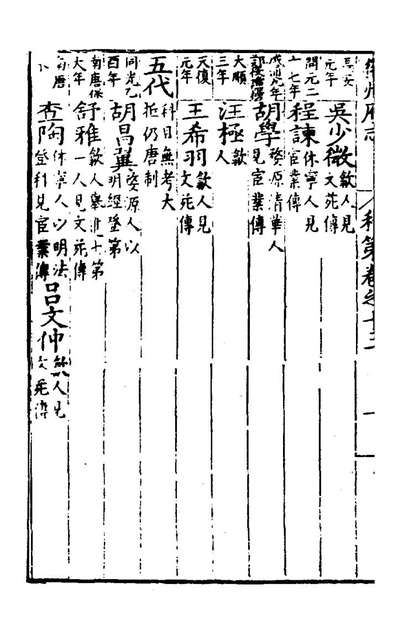 州府志 科第卷之十三 一
安元年 吳少微 歙人見文苑傳
開元二十七年 程諫 休寧人見宦業傳
胡學 婺源清華人見宦業傳
大順三年 汪極 歙人
天復元年 王希羽 歙人見文苑傳
五代 科目無考大抵仍唐制
同光乙酉年 胡昌翼 婺源人以明經登第
南唐保大年 舒雅 歙人舉進士第一人見文苑傳
南唐 查陶 休寧人以明法登科見宦業傳 呂文仲 歙人見文苑傳